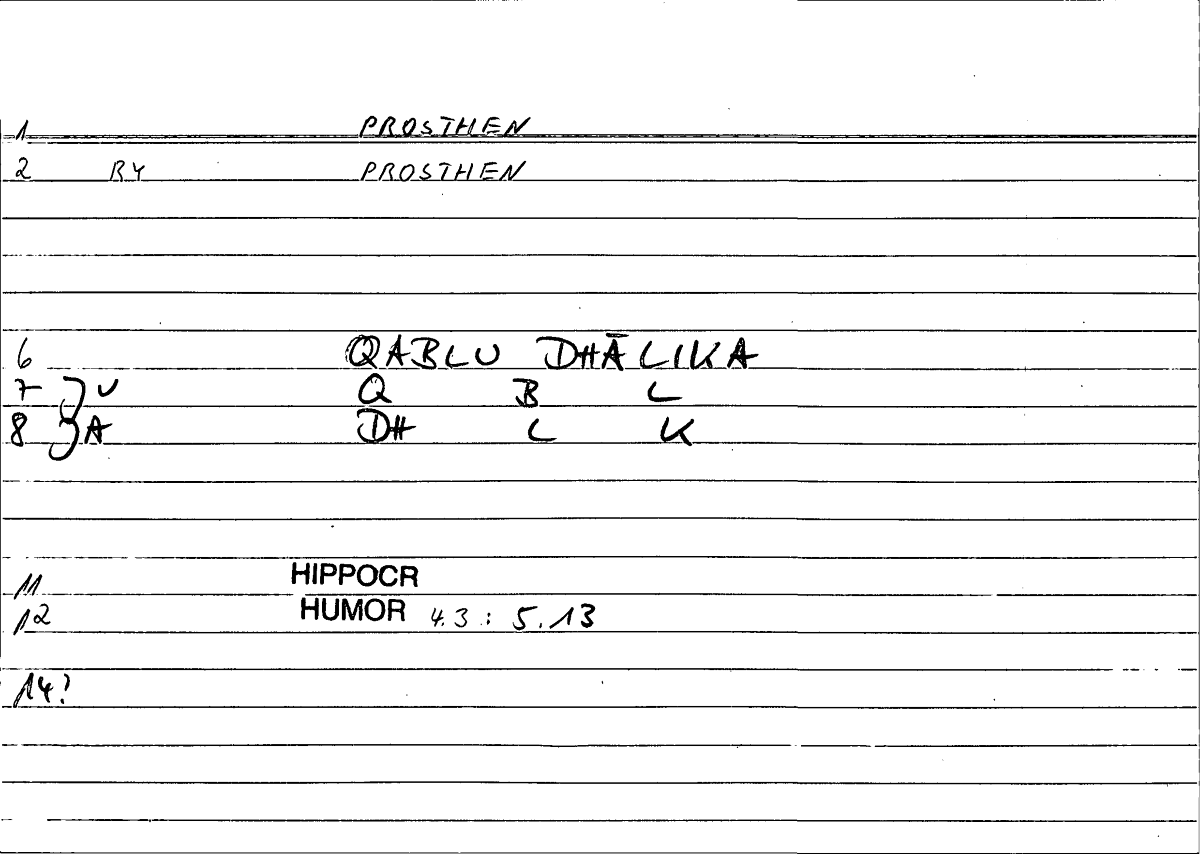 1 PROSTHEN
2 RY PROSTHEN
6 QABLU DHĀLIKA
7 U Q B L
8 A DH L K
11 HIPPOCR
12 HUMOR 4.3 : 5.13
14?